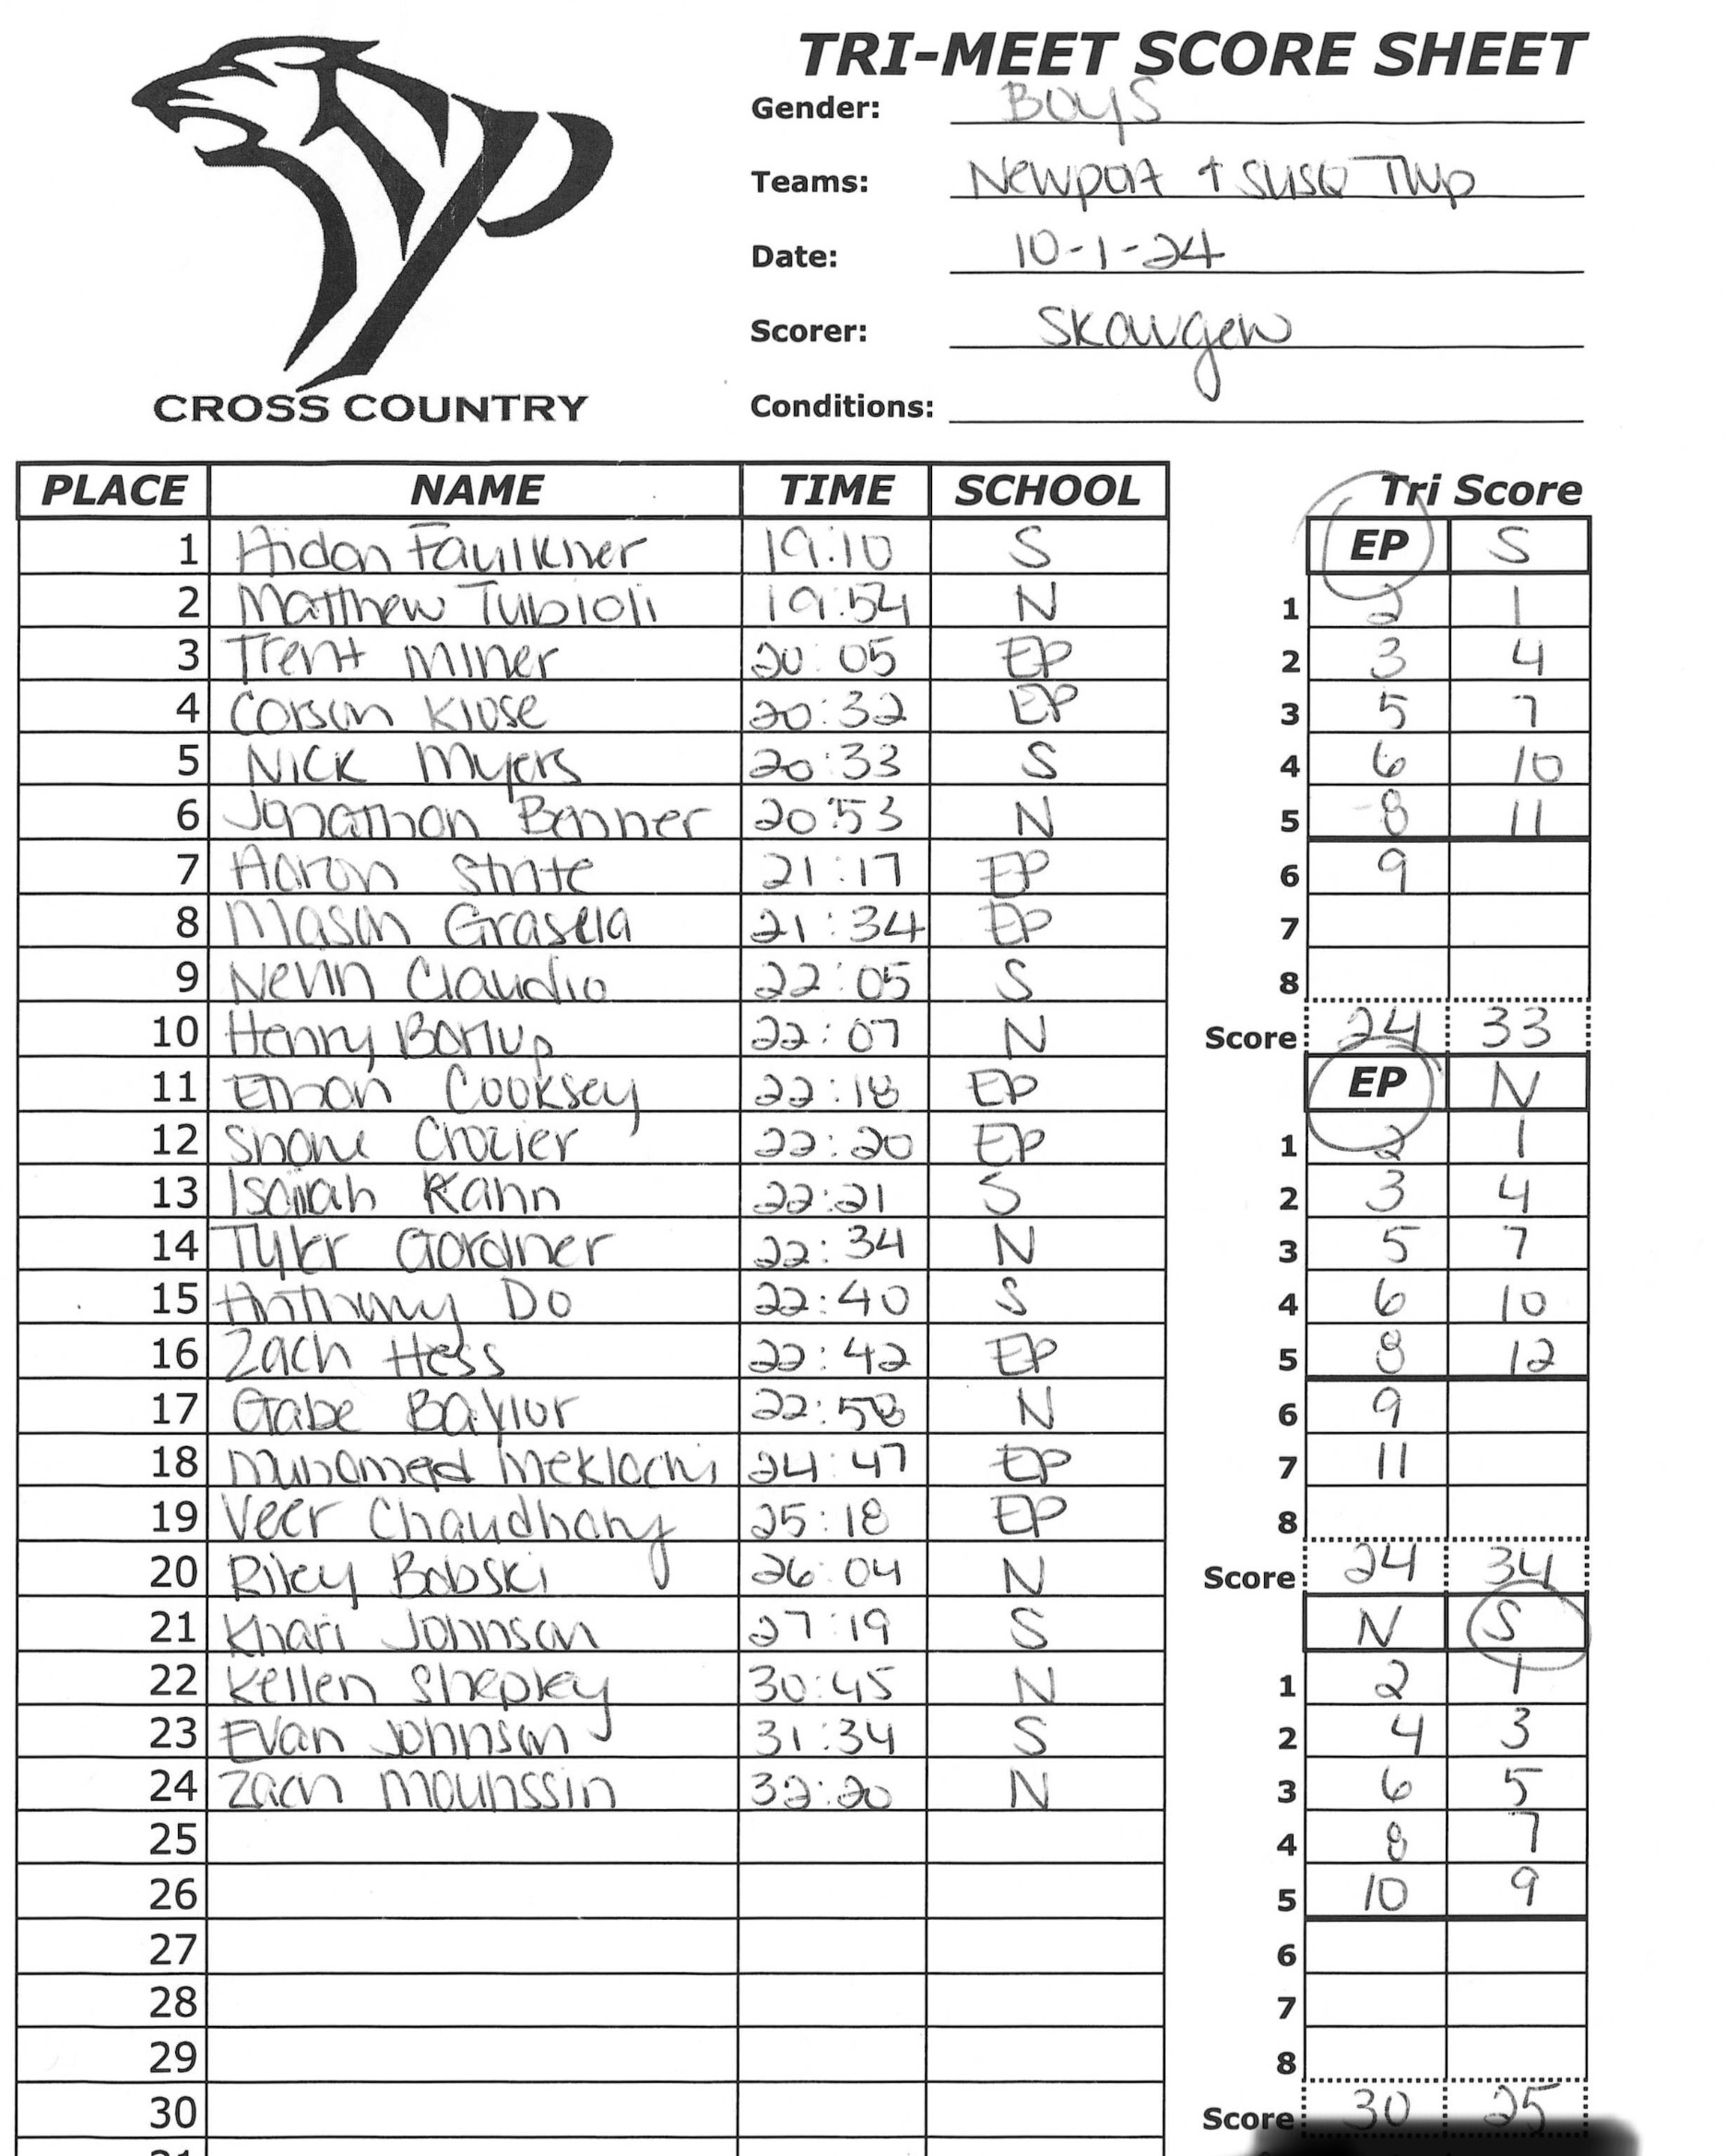 TRI-MEET SCORE SHEET
Gender: Boys
Teams: Newport + SUSQ TWP
Date: 10-1-24
Scorer: Skaugen
Conditions:
CROSS COUNTRY
PLACE NAME TIME SCHOOL
1 Aidan Faulkner 19:10 S
2 Matthew Tubioli 19:54 N
3 Trent Miner 20:05 EP
4 Corson Klose 20:32 EP
5 Nick Myers 20:33 S
6 Jonathon Benner 20:53 N
7 Aaron Strite 21:17 EP
8 Mason Grasela 21:34 EP
9 Nevin Claudio 22:05 S
10 Henry 22:07 N
11 Ethan Cooksey 22:18 EP
12 Shane Crozier 22:20 EP
13 Isaiah Rahn 22:21 S
14 Tyler Gardner 22:34 N
15 Anthony Do 22:40 S
16 Zach Hess 22:42 EP
17 Gabe Baylor 22:58 N
18 24:47 EP
19 Veer Chaudhary 25:18 EP
20 Riley Bobski 26:04 N
21 Khari Johnson 27:19 S
22 Kellen Shepley 30:45 N
23 Evan Johnson 31:34 S
24 Zach Mounssin 32:20 N
25
26
27
28
29
30
Tri Score
EP S
1 2 1
2 3 4
3 5 7
4 6 10
5 8 11
6 9
7
8
Score 24 33
EP N
1 2 1
2 3 4
3 5 7
4 6 10
5 8 12
6 9
7 11
8
Score 24 34
N S
1 2 1
2 4 3
3 6 5
4 8 7
5 10 9
6
7
8
Score 30 25